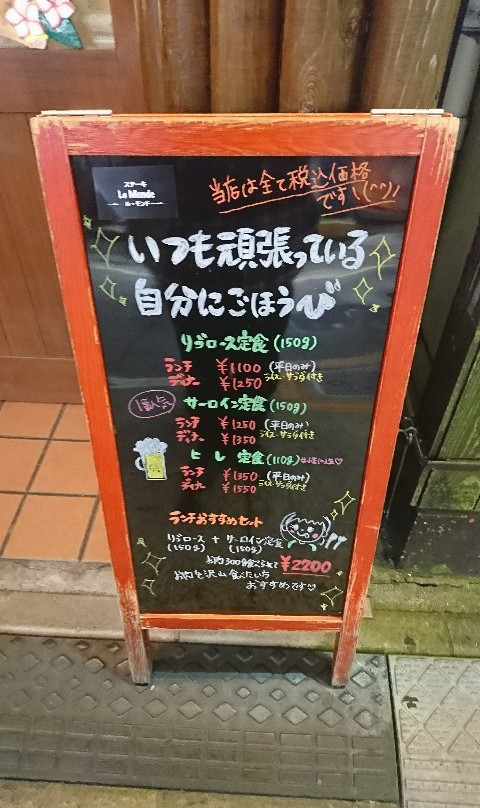 ステーキ
Le Monde
ル・モンド
当店は全て税込価格
です！(^^)!
いつも頑張っている
自分にごほうび
リブロース定食(150g)
ランチ ¥1100 (平日のみ)
ディナー ¥1250 ライス・サラダ付き
1番人気 サーロイン定食(150g)
ランチ ¥1250 (平日のみ)
ディナー ¥1350 ライス・サラダ付き
ヒレ定食(110g)
ランチ ¥1350 (平日のみ)
ディナー ¥1550 ライス・サラダ付き
ランチおすすめセット
リブロース + サーロイン定食
(150g) (150g)
お肉300g食べられて ¥2200
お肉を沢山食べたい方
おすすめです♡